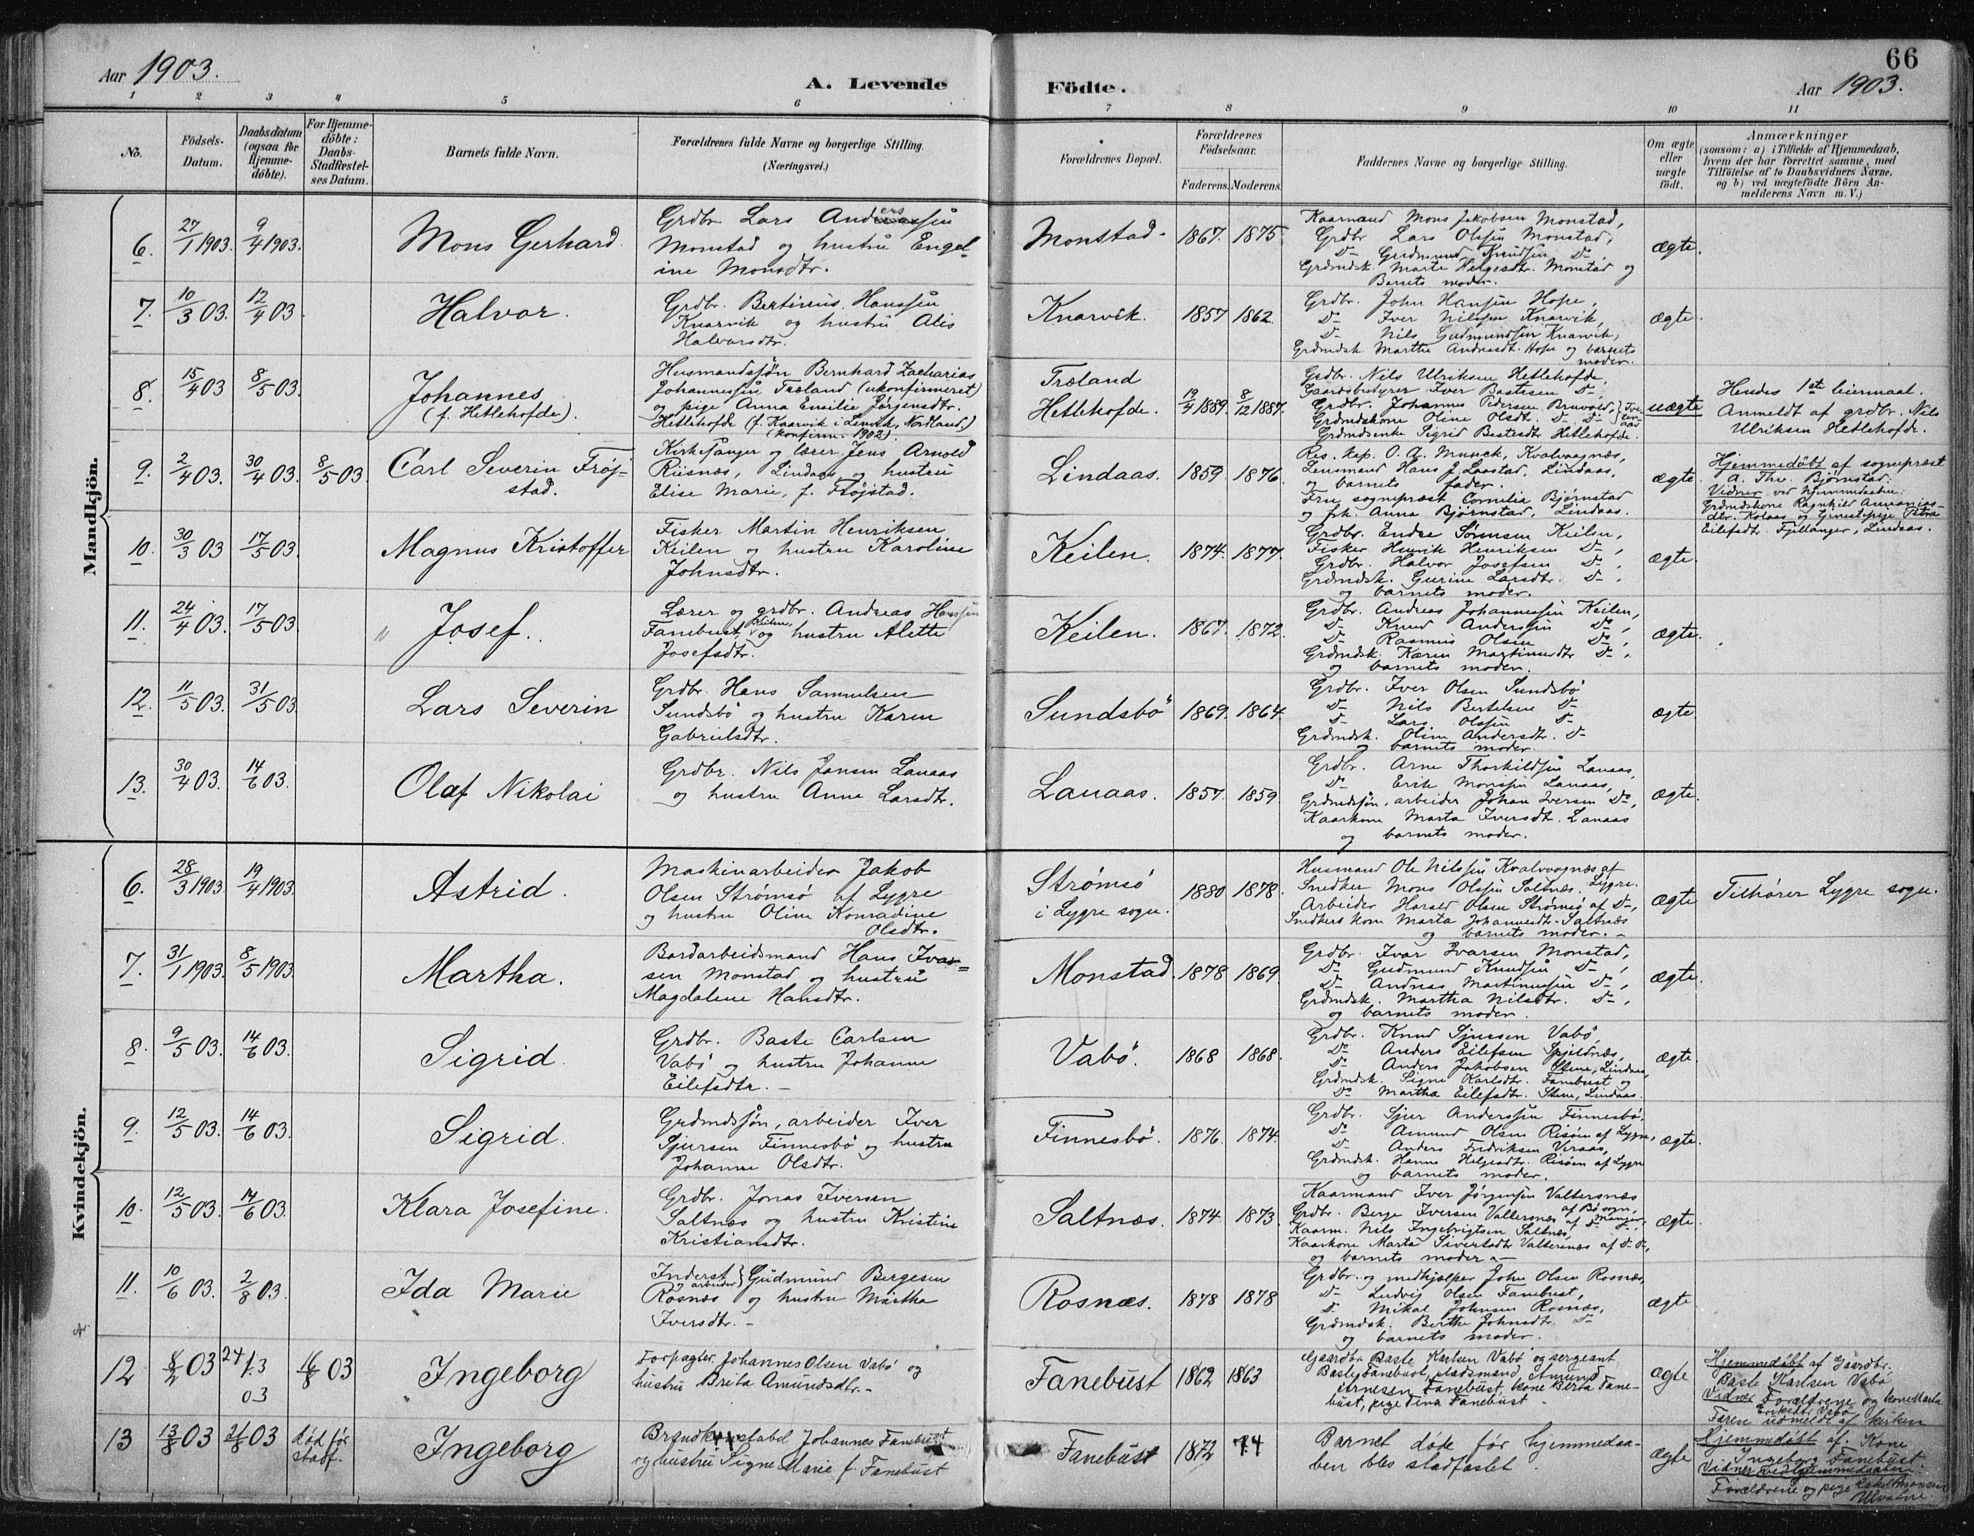 66
Aar 1903.
A. Levende Födte.
Aar 1903.
1 2 3 4 5 6 7 8 9 10 11
No.
Födsels-
Datum.
Daabsdatum
(ogsaa for
Hjemme-
döbte).
For Hjemme-
döbte:
Daabs-
Stadfæstel-
ses Datum.
Barnets fulde Navn.
Forældrenes fulde Navne og borgerlige Stilling.
(Næringsvei.)
Forældrenes Bopæl.
Forældrenes
Födselsaar.
Faderens. Moderens.
Faddernes Navne og borgerlige Stilling.
Om ægte
eller
uægte
födt.
Anmærkninger
(saasom: a) i Tilfælde af Hjemmedaab,
hvem der har forrettet samme, med
Tilföielse af to Daabsvidners Navne,
og b) ved uægtefödte Börn An-
melderens Navn m. V.)
Mandkjön.
6. 27/1 1903. 9/4 1903. Mons Gerhard.
Grdbr. Lars Anderssen
Monstad og hustru Engel-
ine Monsdtr.
Monstad. 1867. 1875.
Kaarmand Mons Jakobsen Monstad,
Grdbr. Lars Olssen Monstad,
D= Gudmund Knudsen D=
Grdmdsk. Marte Helgesdtr. Monstad og
Barnets moder.
ægte.
7. 10/3 03. 12/4 03. Halvor.
Grdbr. Bertinius Hanssen
Knarvik og hustru Alis
Halvorsdtr.
Knarvik. 1857 1862.
Grdbr. John Hansen Hope,
D= Iver Nilssen Knarvik
D= Nils Gudmundsen Knarvik,
Grdmdsk Marthe Andersdt. Hope og barnets
moder.
ægte.
8. 15/4 03 8/5 03. Johannes
(f. Hetlehofde).
Husmandssøn Bernhard Zacharias
Johannessen Træland (ukonfirmeret)
og pige Anna Emilie Jørgensdtr.
Hetlehofde (f. Kaarvik i Lenvik, Nordland.)
(konfirm. 1902)
Træland
Hetlehofde. 12/4 1889. 8/12 1887.
Grdbr. Nils Ulriksen Hetlehofde,
Gaardsbestyrer Iver Bastesen D=,
Grdbr. Johannes Pedersen Bruvold
Grdmdskone Oline Olsdt. D= D=
Grdmdsenke Sigrid Bastesdt Hetlehofde.
uægte
Hendes 1ste leiermaal.
Anmeldt af grdbr. Nils
Ulriksen Hetlehofde.
9. 2/4 03. 30/4 03. 8/5 03. Carl Severin Frøj-
stad.
Kirkesanger og lærer Jens Arnold
Riisnæs, Lindaas og hustru
Elise Marie, f. Fløjstad.
Lindaas. 1859. 1876.
Res. kap. O. A. Munck, Kvalvaagnæs,
Lensmand Hans J. Laastad, Lindaas,
og barnets fader.
Fru sognepræst Cornelia Bjørnstad
og frk. Anna Bjørnstad, Lindaas.
ægte.
Hjemmedøbt af sognepræst
A. Thv. Bjørnstad.
Vidner ved hjemmedaaben:
Grdmdskone Ragnhild Ammanias-
dtr. Kolaas og tjenestepige Petra
Eilefsdt. Fjellanger, Lindaas.
10. 30/3 03 17/5 03. Magnus Kristoffer
Fisker Martin Henriksen
Keilen og hustru Karoline
Johnsdtr.
Keilen. 1874. 1877.
Grdbr. Endre Sørensen Keilen,
Fisker Henrik Henriksen D=,
Grdbr. Halvor Josefsen D=,
Grdmdsk. Gurine Larsdt. D=,
og barnets moder.
ægte.
11. 24/4 03. 17/5 03. Josef.
Lærer og grdbr. Andreas Hanssen
Fanebust, Keilen, og hustru Alette
Josefsdtr.
Keilen. 1867. 1872.
Grdbr. Andreas Johannessen Keilen,
D= Knud Anderssen D=,
D= Rasmus Olsen D=,
Grdmdsk. Karen Martinusdtr D=,
og barnets moder.
ægte.
12. 11/5 03. 31/5 03. Lars Severin
Grdbr. Hans Samuelsen
Sundsbö og hustru Karen
Gabrielsdtr.
Sundsbö 1869. 1864.
Grdbr. Iver Olsen Sundsbö
D= Nils Bertelsen D=
D= Lars Olssen D=
Grdmdsk. Oline Andersdt. D=
og barnets moder.
ægte.
13. 30/4 03. 14/6 03. Olaf Nikolai
Grdbr. Nils Jansen Lauaas
og hustru Anne Larsdtr.
Lauaas. 1857. 1859.
Grdbr. Arne Thorkildsen Lauaas,
D= Erik Monssen Lauaas,
Grdmdssøn, arbeider Johan Iversen D=,
Kaarkone Marta Iversdt. Lauaas
og barnets moder.
ægte.
Kvindekjön.
6. 28/3 1903. 19/4 1903. Astrid.
Maskinarbeider Jakob
Olsen Strømsø af Lygre
og hustru Oline Konradine
Olsdtr.
Strømsø
i Lygre sogn. 1880 1878.
Husmand Ole Nilssen Kvalvaagnæs af
Snedker Mons Olssen Saltnæs. Lygre.
Arbeider Harald Olsen Strømsø af D=,
Snedkers kone Marta Johannesdt. Saltnæs
og barnets moder.
ægte
Tilhører Lygre sogn.
7. 31/1 1903. 8/5 1903. Martha.
Bordarbeidsmand Hans Ivar-
sen Monstad og hustru
Magdalene Hansdtr.
Monstad. 1878. 1869.
Grdbr. Ivar Ivarsen Monstad,
D= Gudmund Knudsen D=,
D= Andreas Martinussen D=,
Grdmdsk. Martha Nilsdtr. D=,
og barnets moder.
ægte.
8. 9/5 03. 14/6 03. Sigrid.
Grdbr. Baste Carlsen
Vabø og hustru Johanne
Eilefsdtr.
Vabø. 1868 1868.
Grdbr. Knud Sjursen Vabø,
D= Anders Eilefsen Spjeldnæs,
D= Anders Jakobsen Stene, Lindaas,
Grdmdsk. Signe Karlsdt. Fanebust og
D= Martha Eilefsdt. Stene, Lindaas.
ægte.
9. 12/5 03. 14/6 03. Sigrid.
Grdmdssøn, arbeider Iver
Sjursen Finnesbö og hustru
Johanne Olsdtr.
Finnesbö. 1876. 1874.
Grdbr. Sjur Anderssen Finnesbö,
D= Amund Olsen Risøen af Lygre,
D= Anders Fredriksen Viraas,
Grdmdsk. Hanne Helgesdtr. Risøen af Lygre
og barnets moder.
ægte.
10. 12/5 03. 14/6 03. Klara Josefine.
Grdbr. Jonas Iversen
Saltnæs og hustru Kristine
Kristiansdtr.
Saltnæs. 1874. 1873.
Kaarmand Iver Jørgensen Valtersnæs
Grdbr. Berge Iversen Valtersnæs af D= Manger,
Kaarm. Nils Ingebrigtsen Saltnæs,
Kaarkone Marta Sivertsdt Valtersnæs af D= D=,
og barnets moder.
ægte.
11. 10/6 03. 2/8 03. Ida Marie
Inderst arbeider Gudmund Bergesen
Rosnæs og hustru Martha
Iversdtr.
Rosnæs. 1878 1878
Grdbr. og medhjælper John Olsen Rosnæs,
D= Ludvig Olsen Fanebust,
D= Mikal Johnsen Rosnæs,
Grdmdsk. Berthe Johnsdt. D=
og barnets moder.
ægte
12 8/2 03 24/3 03 16/8 03 Ingeborg
Forpagter Johannes Olsen Vabø og
hustru Brita Amundsdtr.
Fanebust 1862 1863
Gaardbr. Baste Karlsen Vabø og sergeant
Baste Fanebust, stadsmand Amund
Arnesen Fanebust, kone Berta Fane-
bust, pige Tina Fanebust.
ægte
Hjemmedøbt af Gaardbr.
Baste Karlsen Vabø
Vidner Forældrene og kone Marta
Eriksdtr Vabø
Faren udmeldt af kirken
13 13/8 03 21/8 03 død før
stadf. Ingeborg
Brandkonstabel Johannes Fanebust
og hustru Signe Marie f. Fanebust
Fanebust 1872 74
Barnet døde før hjemmedaa-
ben blev stadfæstet.
ægte
Hjemmedøbt af Kone
Ingeborg Fanebust.
Vidner ved hjemmedaaben:
Forældrene og pige